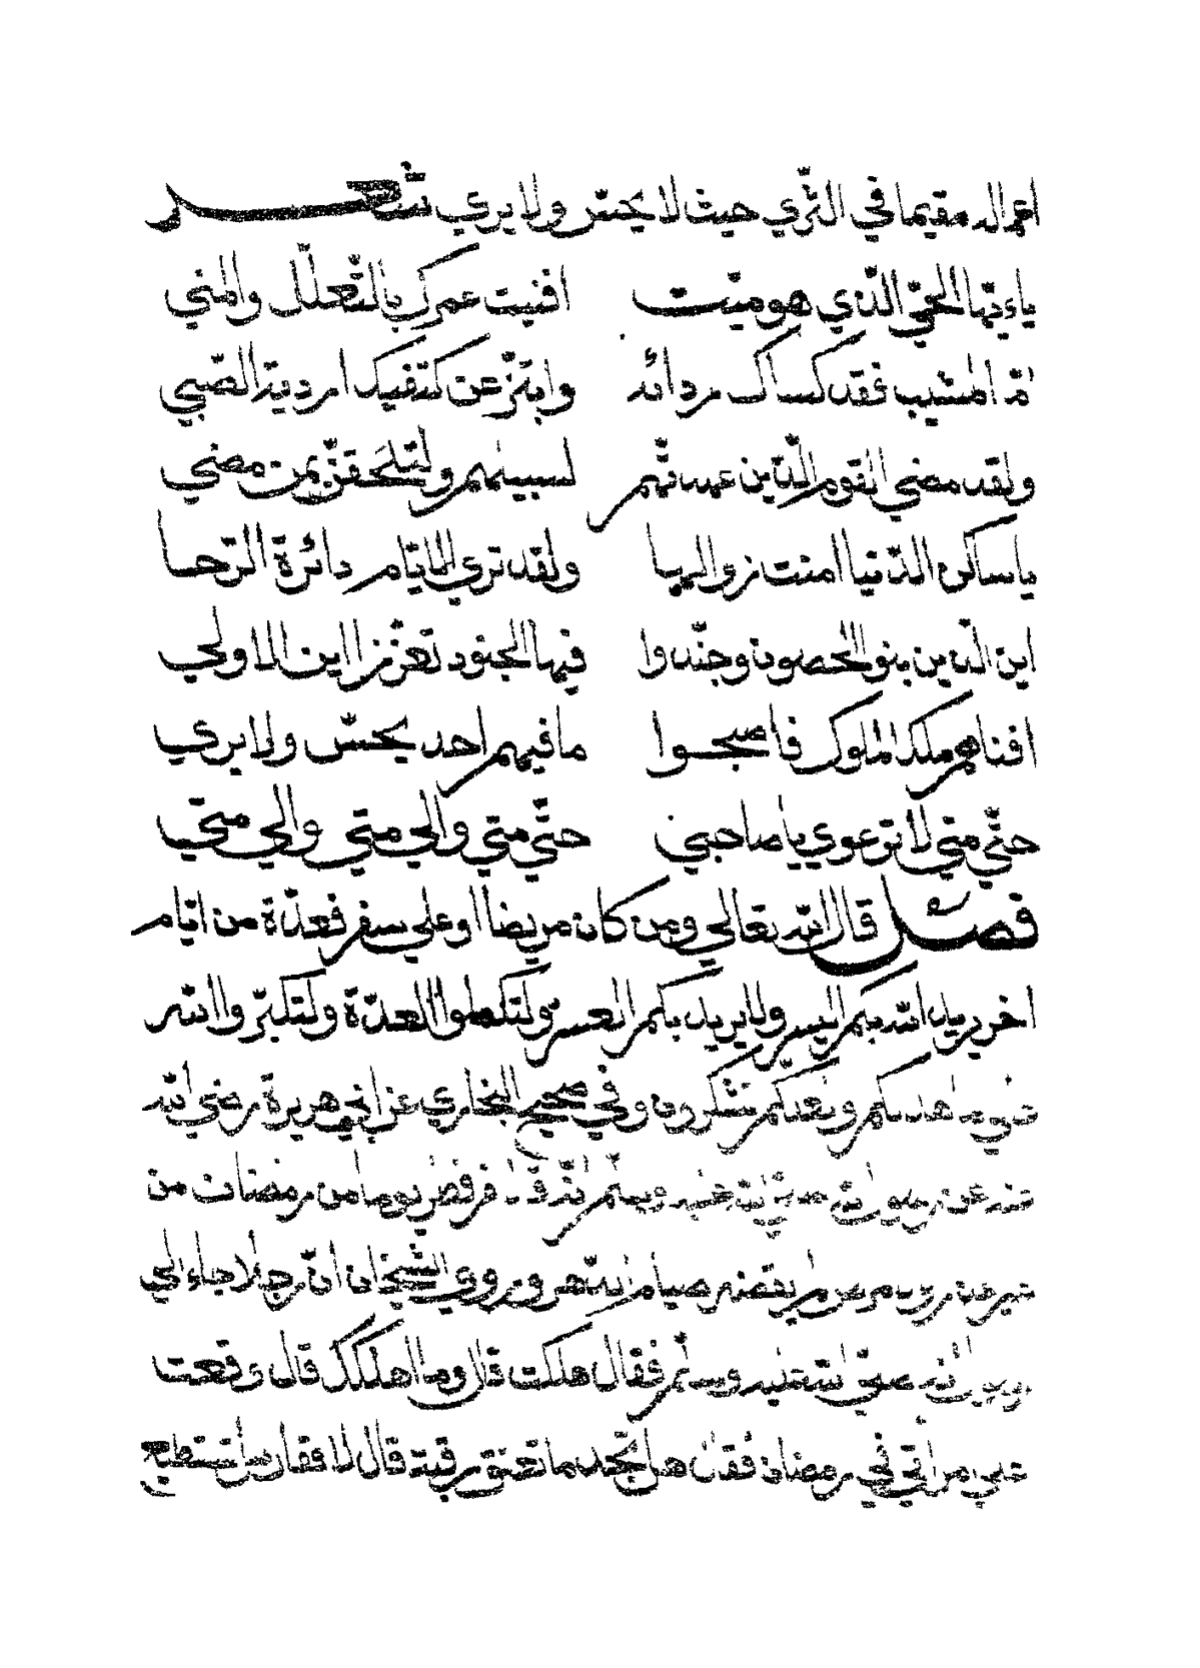 اعماله مقيما في الثّري حيث لا يحسّ ولا يري شعر
ياءيّها الحيّ الذّي هو ميّت افنيت عمرك بالتّعلّل والمني
امّا المشيب فقد كساك رداءه وابتزّ عن كتفيك اردية الصّبي
ولقد مضي القوم الذّين عهدتّهم لسبيلهم ولتلحقنّ بمن مضي
يا ساكن الدّنيا امنت زوالها ولقد تري الايّام دائرة الرّحا
اين الذّين بنو الحصون وجنّدوا فيها الجنود تعزّزا اين الاولي
افناهم ملك الملوك فاصبحوا ما فيهم احد يحسّ ولا يري
حتّي متي لا ترعوي يا صاحبي حتّي متي والي متي والي متي
فصل قال اللّه تعالي ومن كان مريضا او علي سفر فعدّة من ايّام
اخر يريد اللّه بكم اليسر ولا يريد بكم العسر ولتكملوا العدّة ولتكبّروا اللّه
علي ما هداكم ولعلّكم تشكرون وفي صحيح البخاري عن ابي هريرة رضي اللّه
عنه عن رسول اللّه صلّي اللّه عليه وسلّم انّه قال من افطر يوما من رمضان من
غير عذر ولا مرض لم يقضه صيام الدّهر وروي الشّيخان انّ رجلا جاء الي
رسول اللّه صلّي اللّه عليه وسلّم فقال هلكت قال وما اهلكك قال وقعت
علي امراتي في رمضان فقال هل تجد ما تعتق رقبة قال لا فقال هل تستطيع